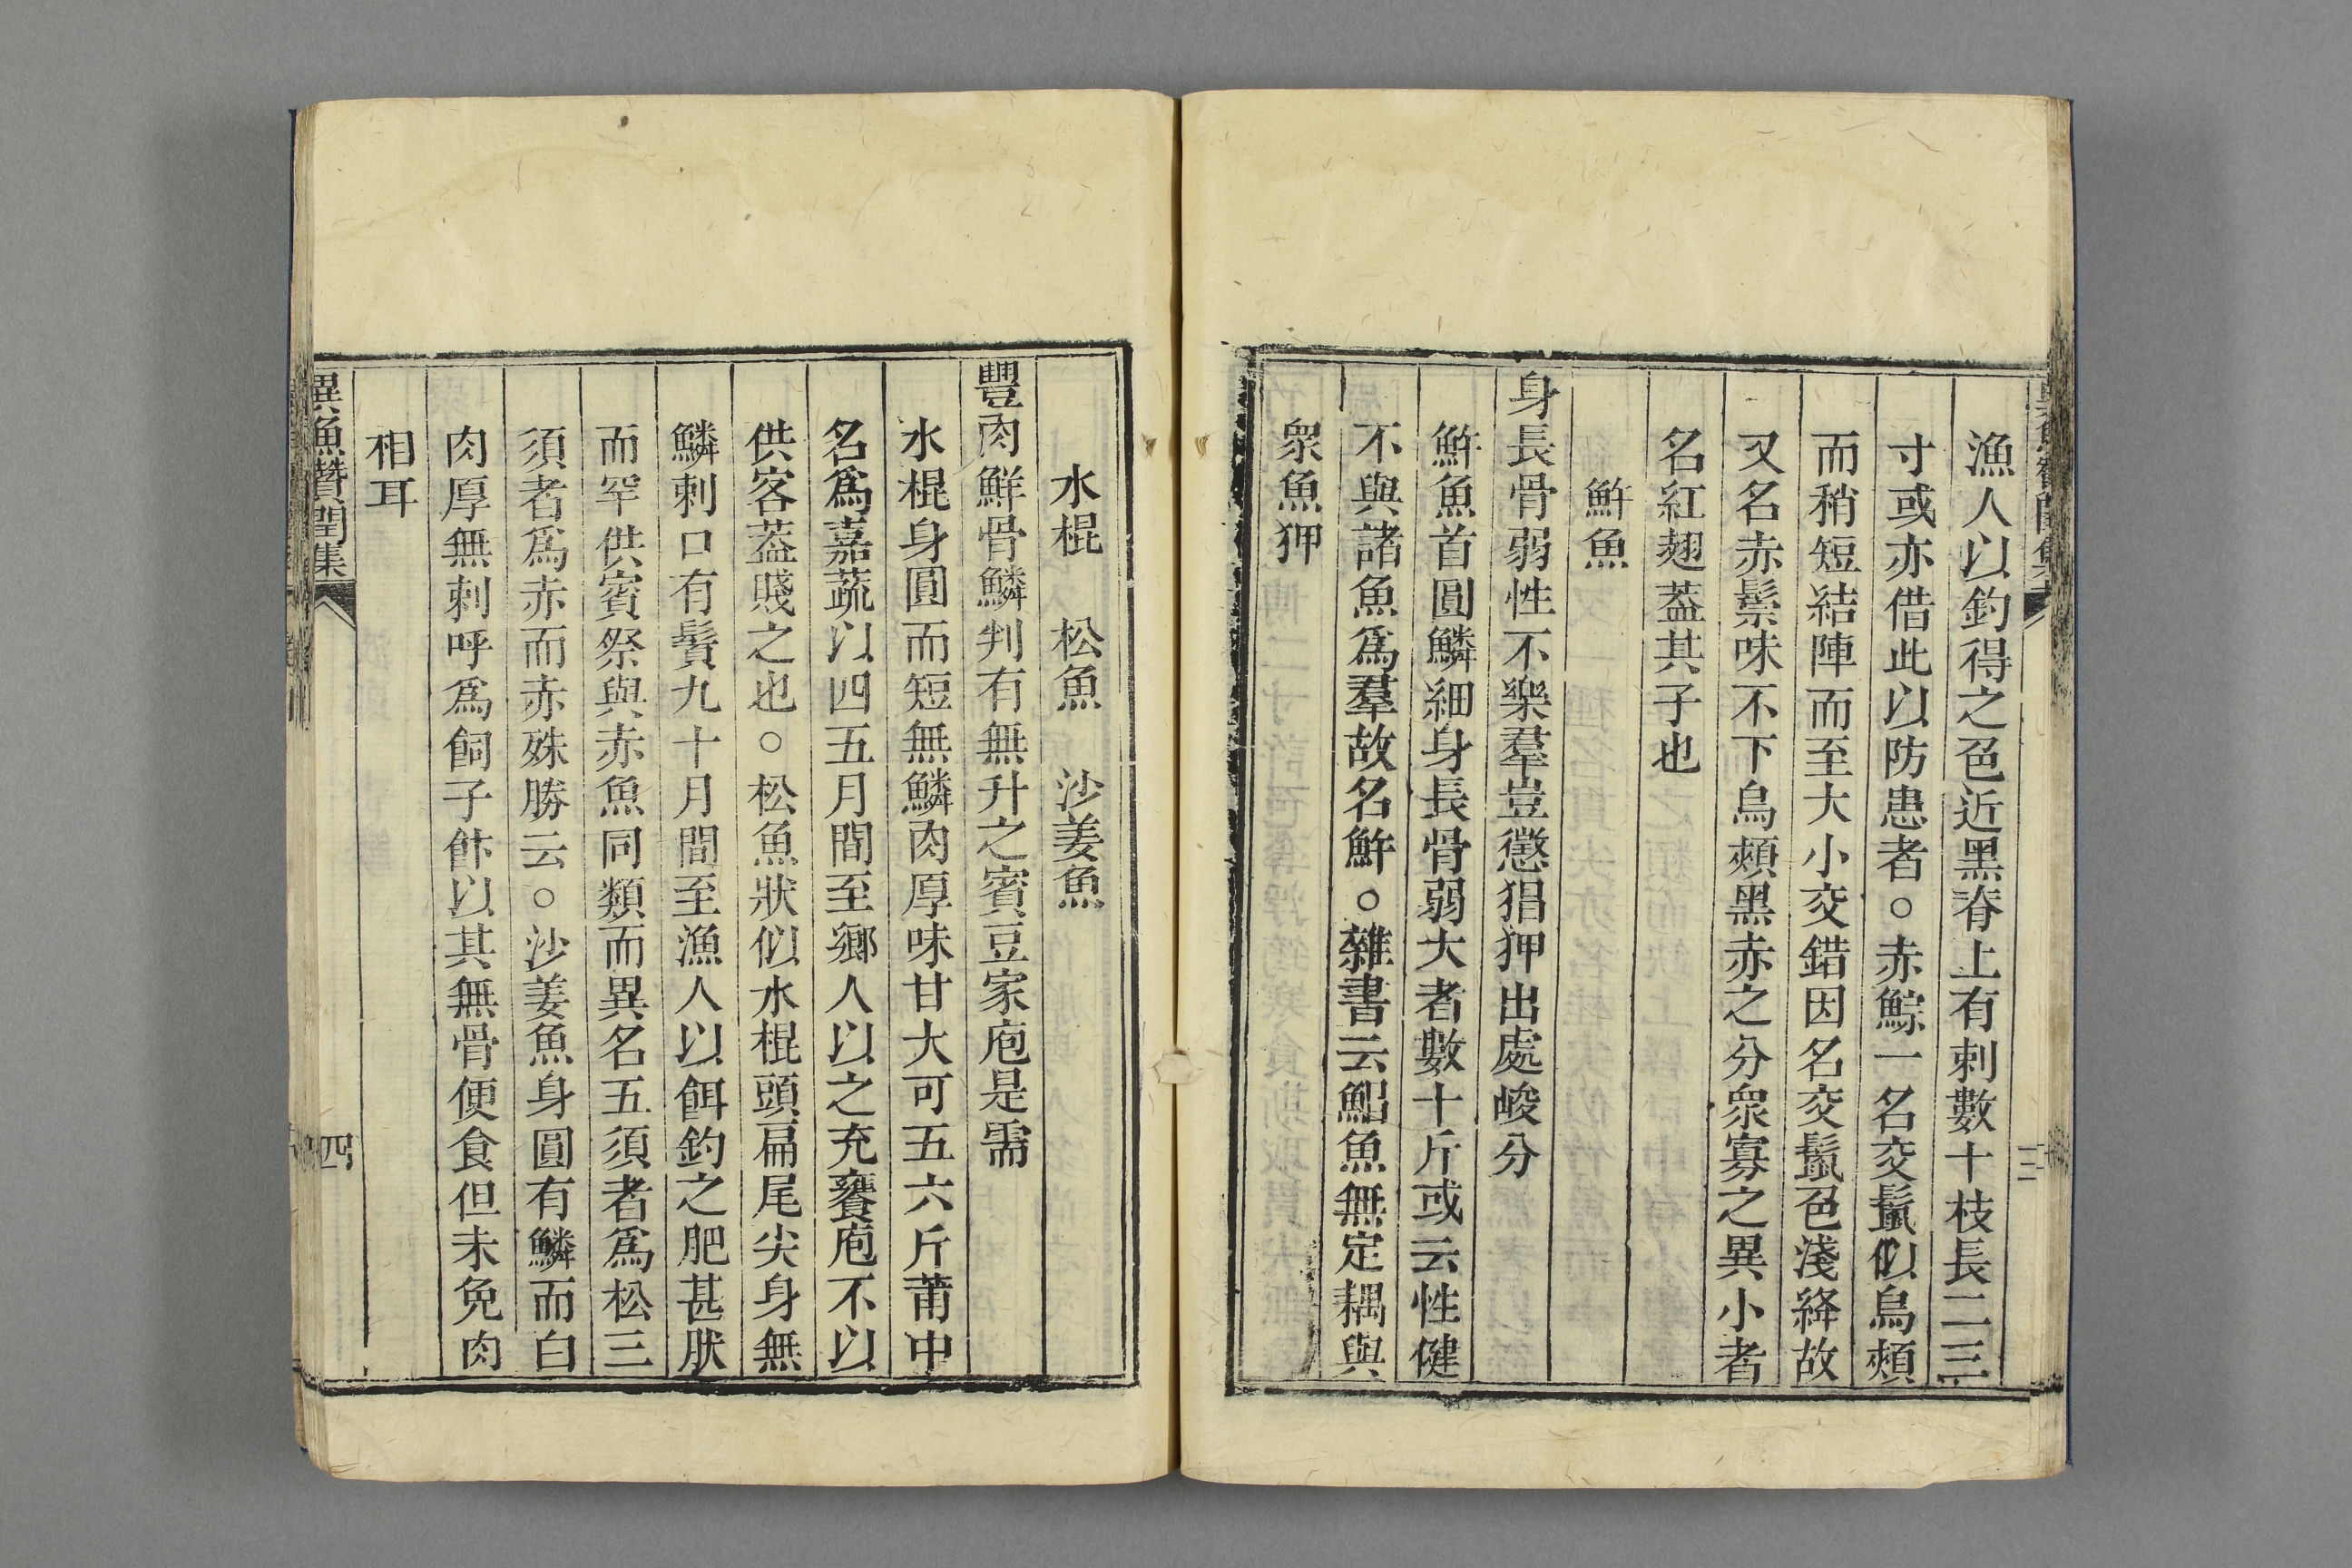 漁人以釣得之色近黑脊上有刺數十枝長二三
寸或亦借此以防患者○赤鯮一名交鬣似烏頰
而稍短結陣而至大小交錯因名交鬣色淺絳故
又名赤鬃味不下烏頰黑赤之分衆寡之異小者
名紅翅葢其子也
鮮魚
身長骨弱性不樂羣豈懲猖狎出處峻分
魚首圓鱗細身長骨弱大者數十斤或云性健
不與諸魚爲羣故名○雜書云鮉魚無定耦與
衆魚狎
三
水棍 松魚 沙姜魚
豐肉鮮骨鱗判有無升之賓豆家庖是需
水棍身圓而短無鱗肉厚味甘大可五六斤莆中
名爲嘉蔬以四五月間至鄉人以之充饔庖不以
供客葢賤之也○松魚狀似水棍頭扁尾尖身無
鱗刺口有鬚九十月間至漁人以餌釣之肥甚肰
而罕供賓祭與赤魚同類而異名五須者爲松三
須者爲赤而赤殊勝云○沙姜魚身圓有鱗而白
肉厚無刺呼爲飼子飰以其無骨便食但未免肉
相耳
異魚贊閏集
四